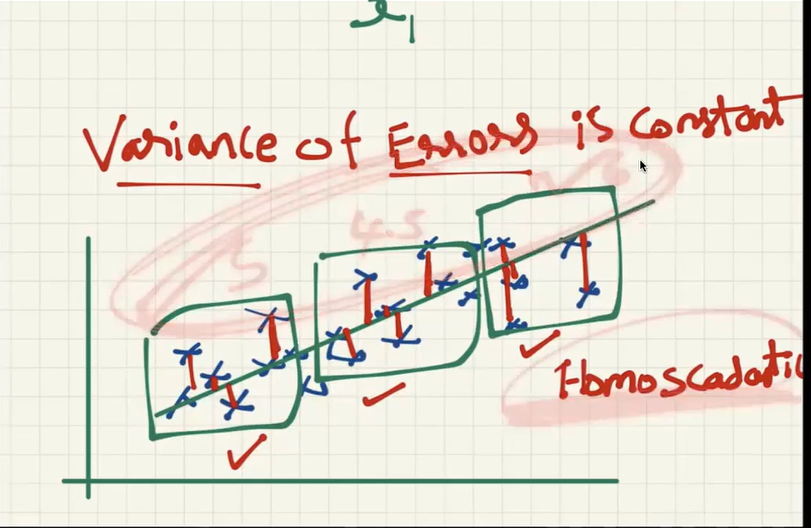 x₁
Variance of Errors is constant
5
4.5
Homoscadasti